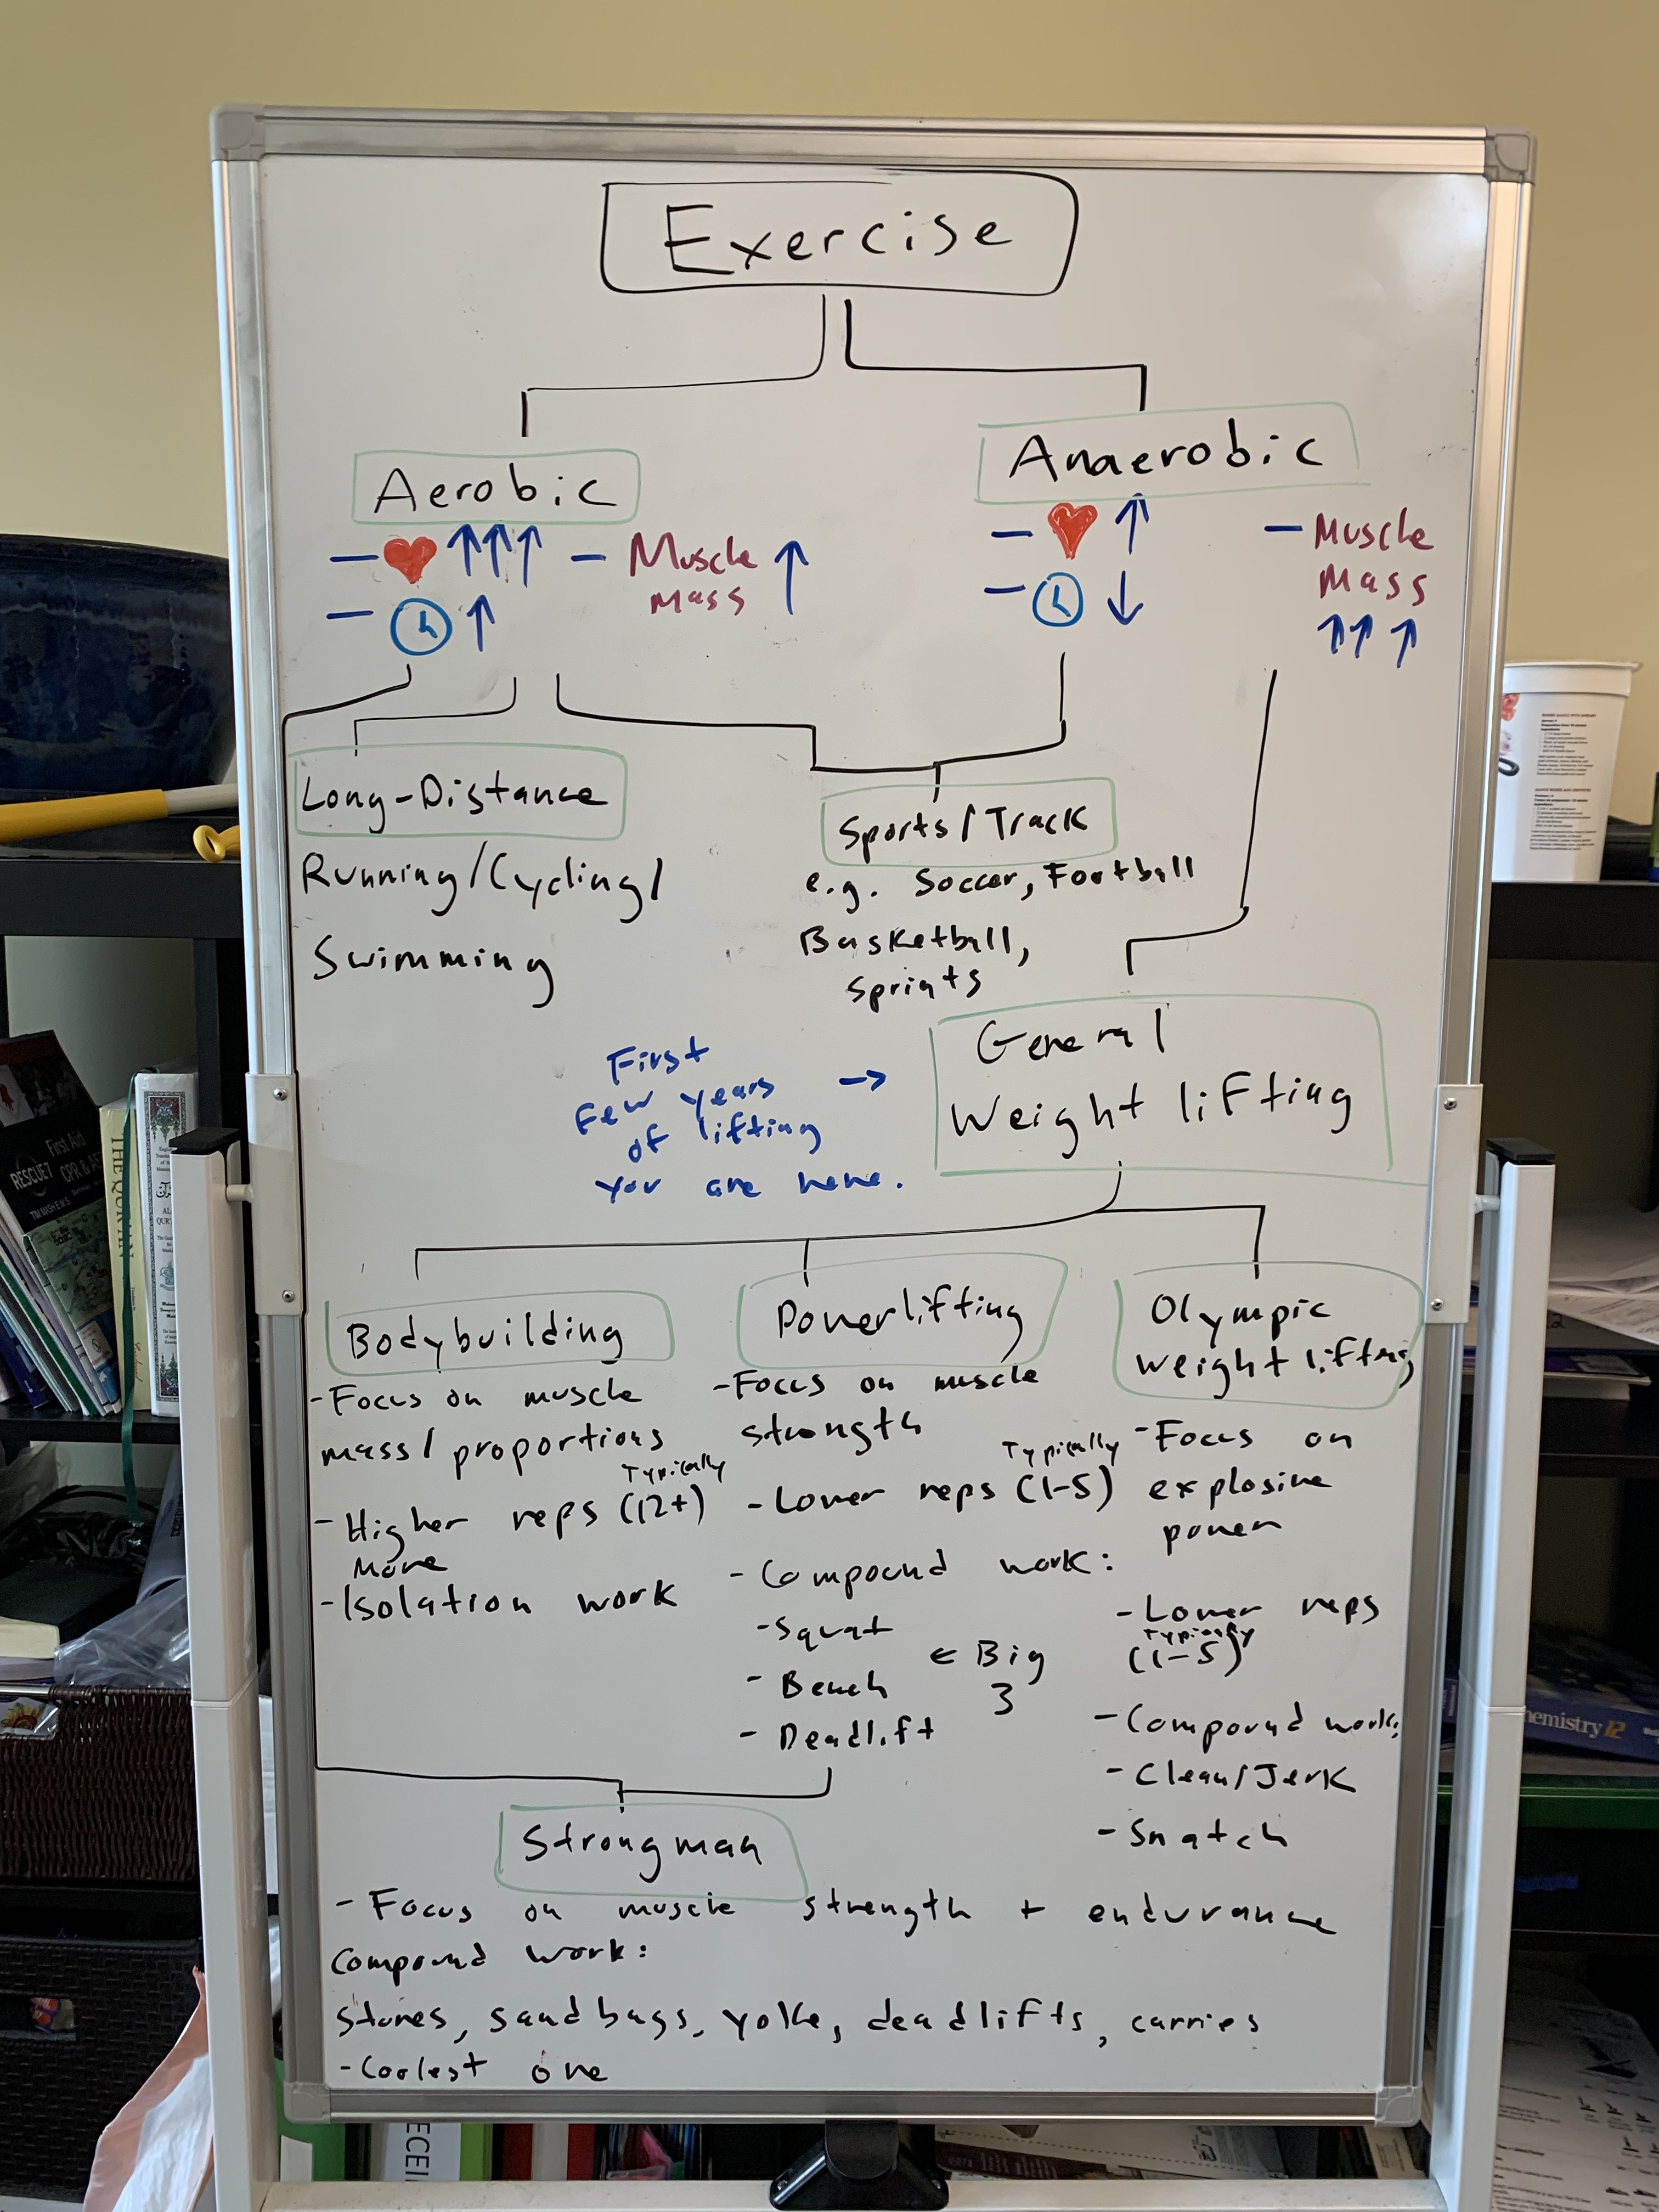 Exercise
Aerobic
Anaerobic
- ❤ ↑↑↑
- Muscle ↑
Mass
- 🕒 ↑
- ❤ ↑
- 🕒 ↓
- Muscle
Mass
↑↑↑
Long-Distance
Running/Cycling/
Swimming
Sports/Track
e.g. Soccer, Football
Basketball,
Sprints
First
Few years
of lifting
you are here.
→
General
Weightlifting
Bodybuilding
- Focus on muscle
mass/proportions
Typically
- Higher reps (12+)
More
- Isolation work
Powerlifting
- Focus on muscle
strength
Typically
- Lower reps (1-5)
- Compound work:
- Squat
- Bench
- Deadlift
← Big
3
Olympic
Weightlifting
- Focus on
explosive
power
- Lower reps
Typically
(1-5)
- Compound work:
- Clean/Jerk
- Snatch
Strongman
- Focus on muscle strength + endurance
Compound work:
Stones, sandbags, yoke, deadlifts, carries
- Coolest one
First Aid
RESCUE7 CPR & AE
THE QUR'AN
AL
QUR'
hemistry 12
ECEI